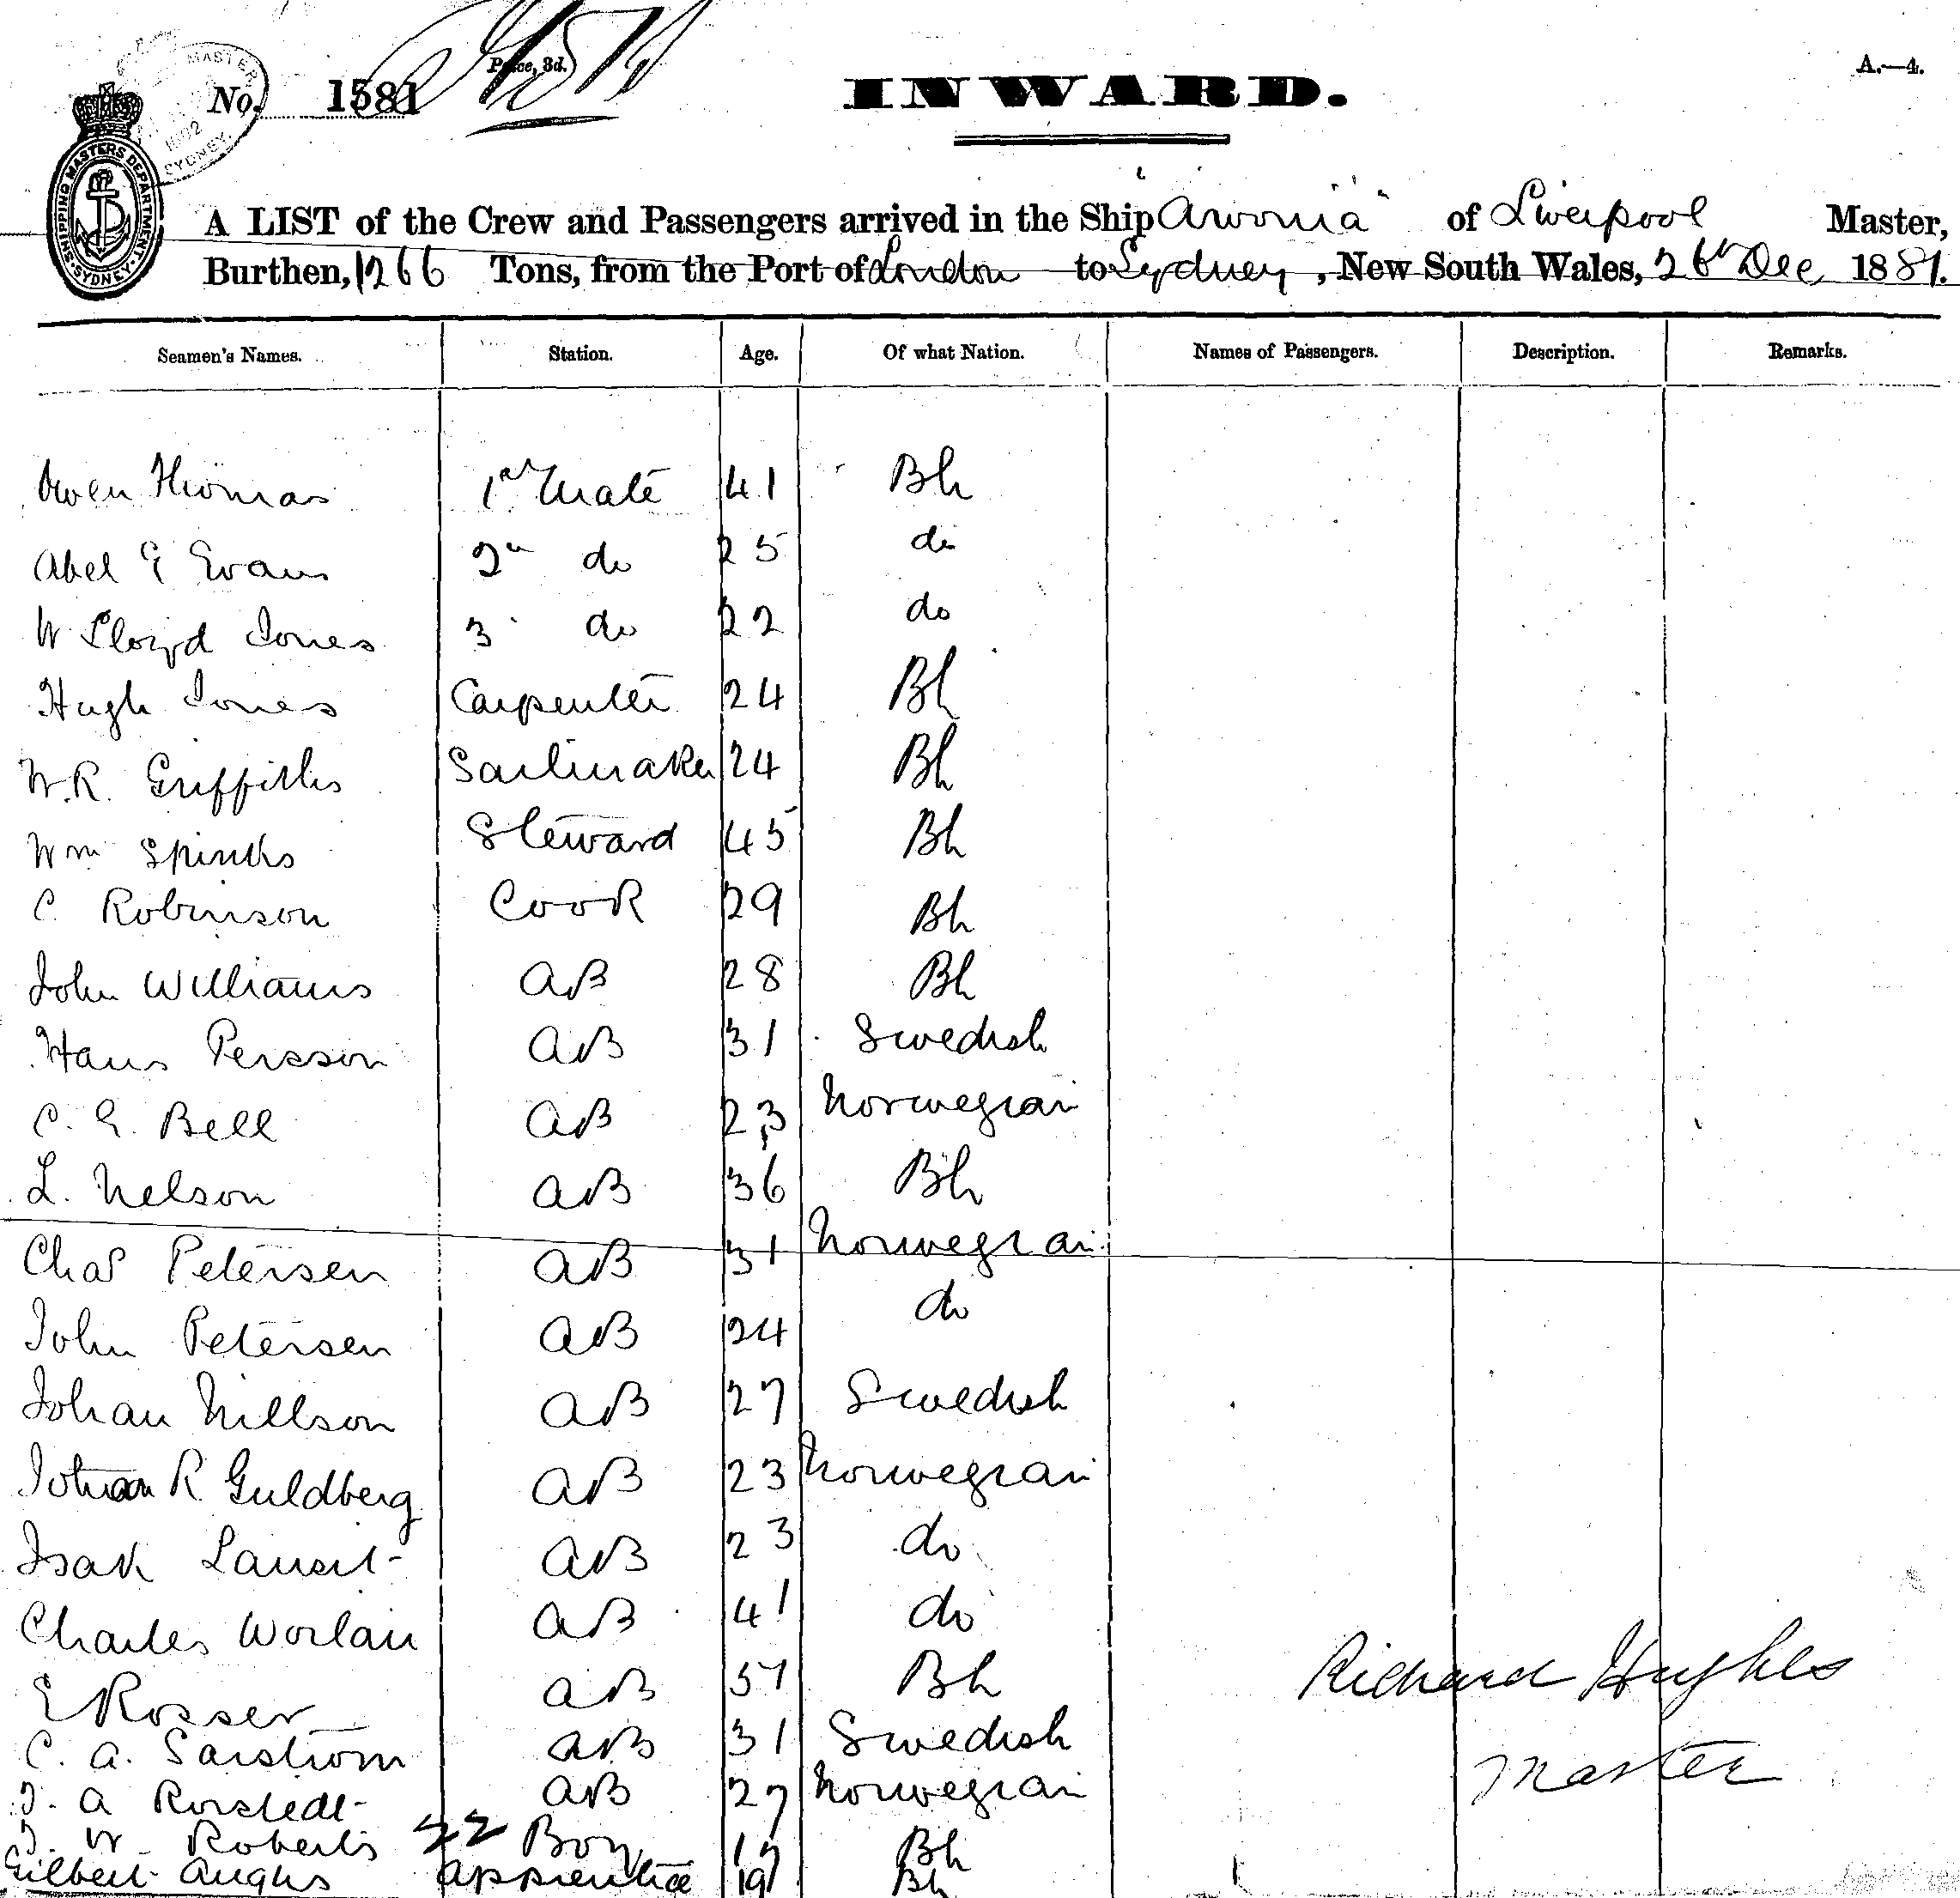 A.—4.
Price, 3d.
MASTER
1892
SYDNEY
No. 1581
INWARD.
SHIPPING MASTERS DEPARTMENT
SYDNEY
A LIST of the Crew and Passengers arrived in the Ship "Arvonia" of Liverpool Master,
Burthen, 1266 Tons, from the Port of London to Sydney, New South Wales, 26th Dec 1881.
Seamen's Names. Station. Age. Of what Nation. Names of Passengers. Description. Remarks.
Owen Thomas 1st Mate 41 Bh
Abel E Evans 2nd do 25 do
W Lloyd Jones 3 do 22 do
Hugh Jones Carpenter 24 Bh
W.R. Griffiths Sailmaker 24 Bh
Wm Spinks Steward 45 Bh
C. Robinson Cook 29 Bh
John Williams AB 28 Bh
Hans Persson AB 31 Swedish
C. E. Bell AB 23 Norwegian
L. Nelson AB 36 Bh
Chas Petersen AB 31 Norwegian
John Petersen AB 24 do
Johan Nillson AB 27 Swedish
Johan R Guldberg AB 23 Norwegian
Isak AB 23 do
Charles Worlan AB 41 do
E Rosser AB 37 Bh
Richard Hughes
C. A. Sarstrom AB 31 Swedish
Master
J. A Rorstedt AB 27 Norwegian
J. W Roberts 22 Boy 17 Bh
Gilbert Anghs Apprentice 19 Bh